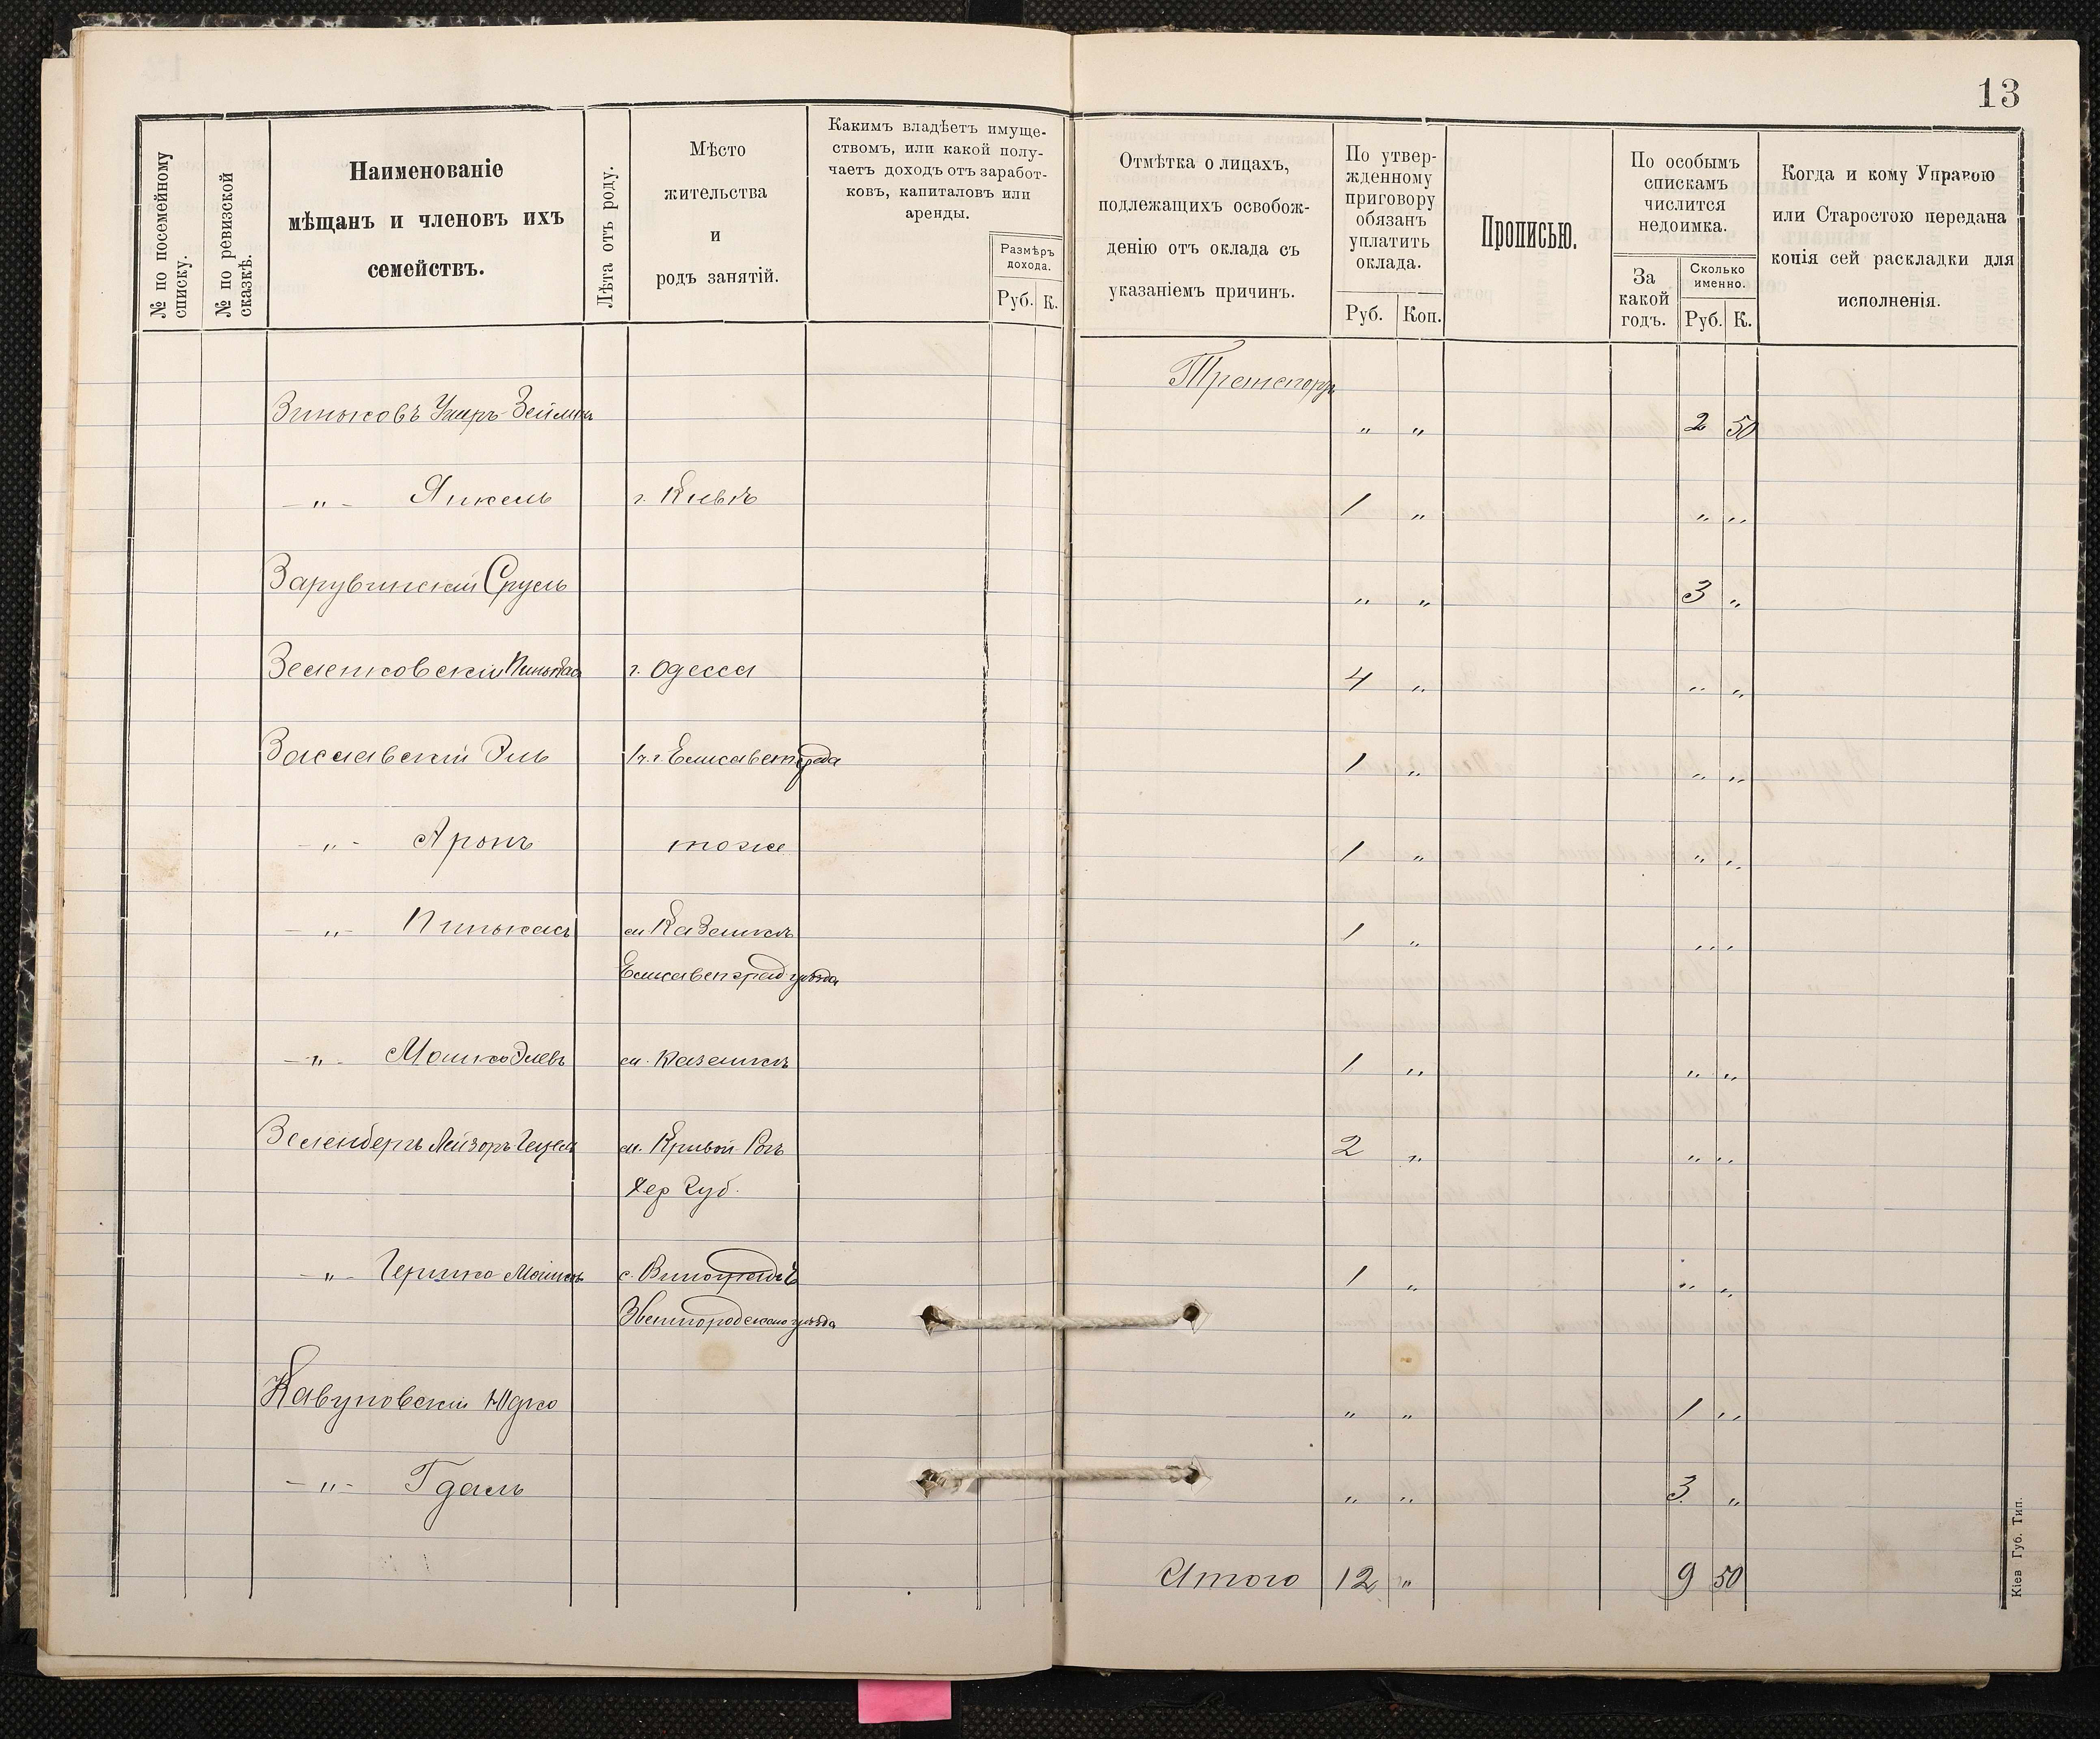 13
№ по посемейному списку.
№ по ревизской сказкѣ.
Наименованіе
мѣщанъ и членовъ ихъ
семействъ.
Лѣта отъ роду.
Мѣсто
жительства
и
родъ занятій.
Какимъ владѣетъ имуще-
ствомъ, или какой полу-
чаетъ доходъ отъ заработ-
ковъ, капиталовъ или
аренды.
Размѣръ
дохода.
Руб. К.
Отмѣтка о лицахъ,
подлежащихъ освобож-
денію отъ оклада съ
указаніемъ причинъ.
По утвер-
жденному
приговору
обязанъ
уплатить
оклада.
Руб. Коп.
Прописью.
По особымъ
спискамъ
числится
недоимка.
За
какой
годъ.
Сколько
именно.
Руб. К.
Когда и кому Управою
или Старостою передана
копія сей раскладки для
исполненія.
Зиньковъ " " 2 50
- " - Янкель г. Кіевъ 1 " " "
Зарувинскій Сруль " " 3 "
Пинькас г. Одесса 4 " " "
Заславскій Эль г. Елисаветграда 1 " " "
- " - Аронъ тоже 1 " " "
- " - Пинькас м Казанка 1 " " "
Елисаветград уѣзда
- " - Мошко Элевъ м. Казанка 1 " " "
Зеленбергъ Лейзоръ м. Кривой Рогъ 2 " " "
Хер Губ.
- " - Гершко Мошковъ с. Виноградъ 1 " " "
Звенигородскаго уѣзда
Кавуновскій Юдко " " 1 "
- " - Гдаль " " 3 "
Итого 12 " 9 50
Кіев Губ. Тип.